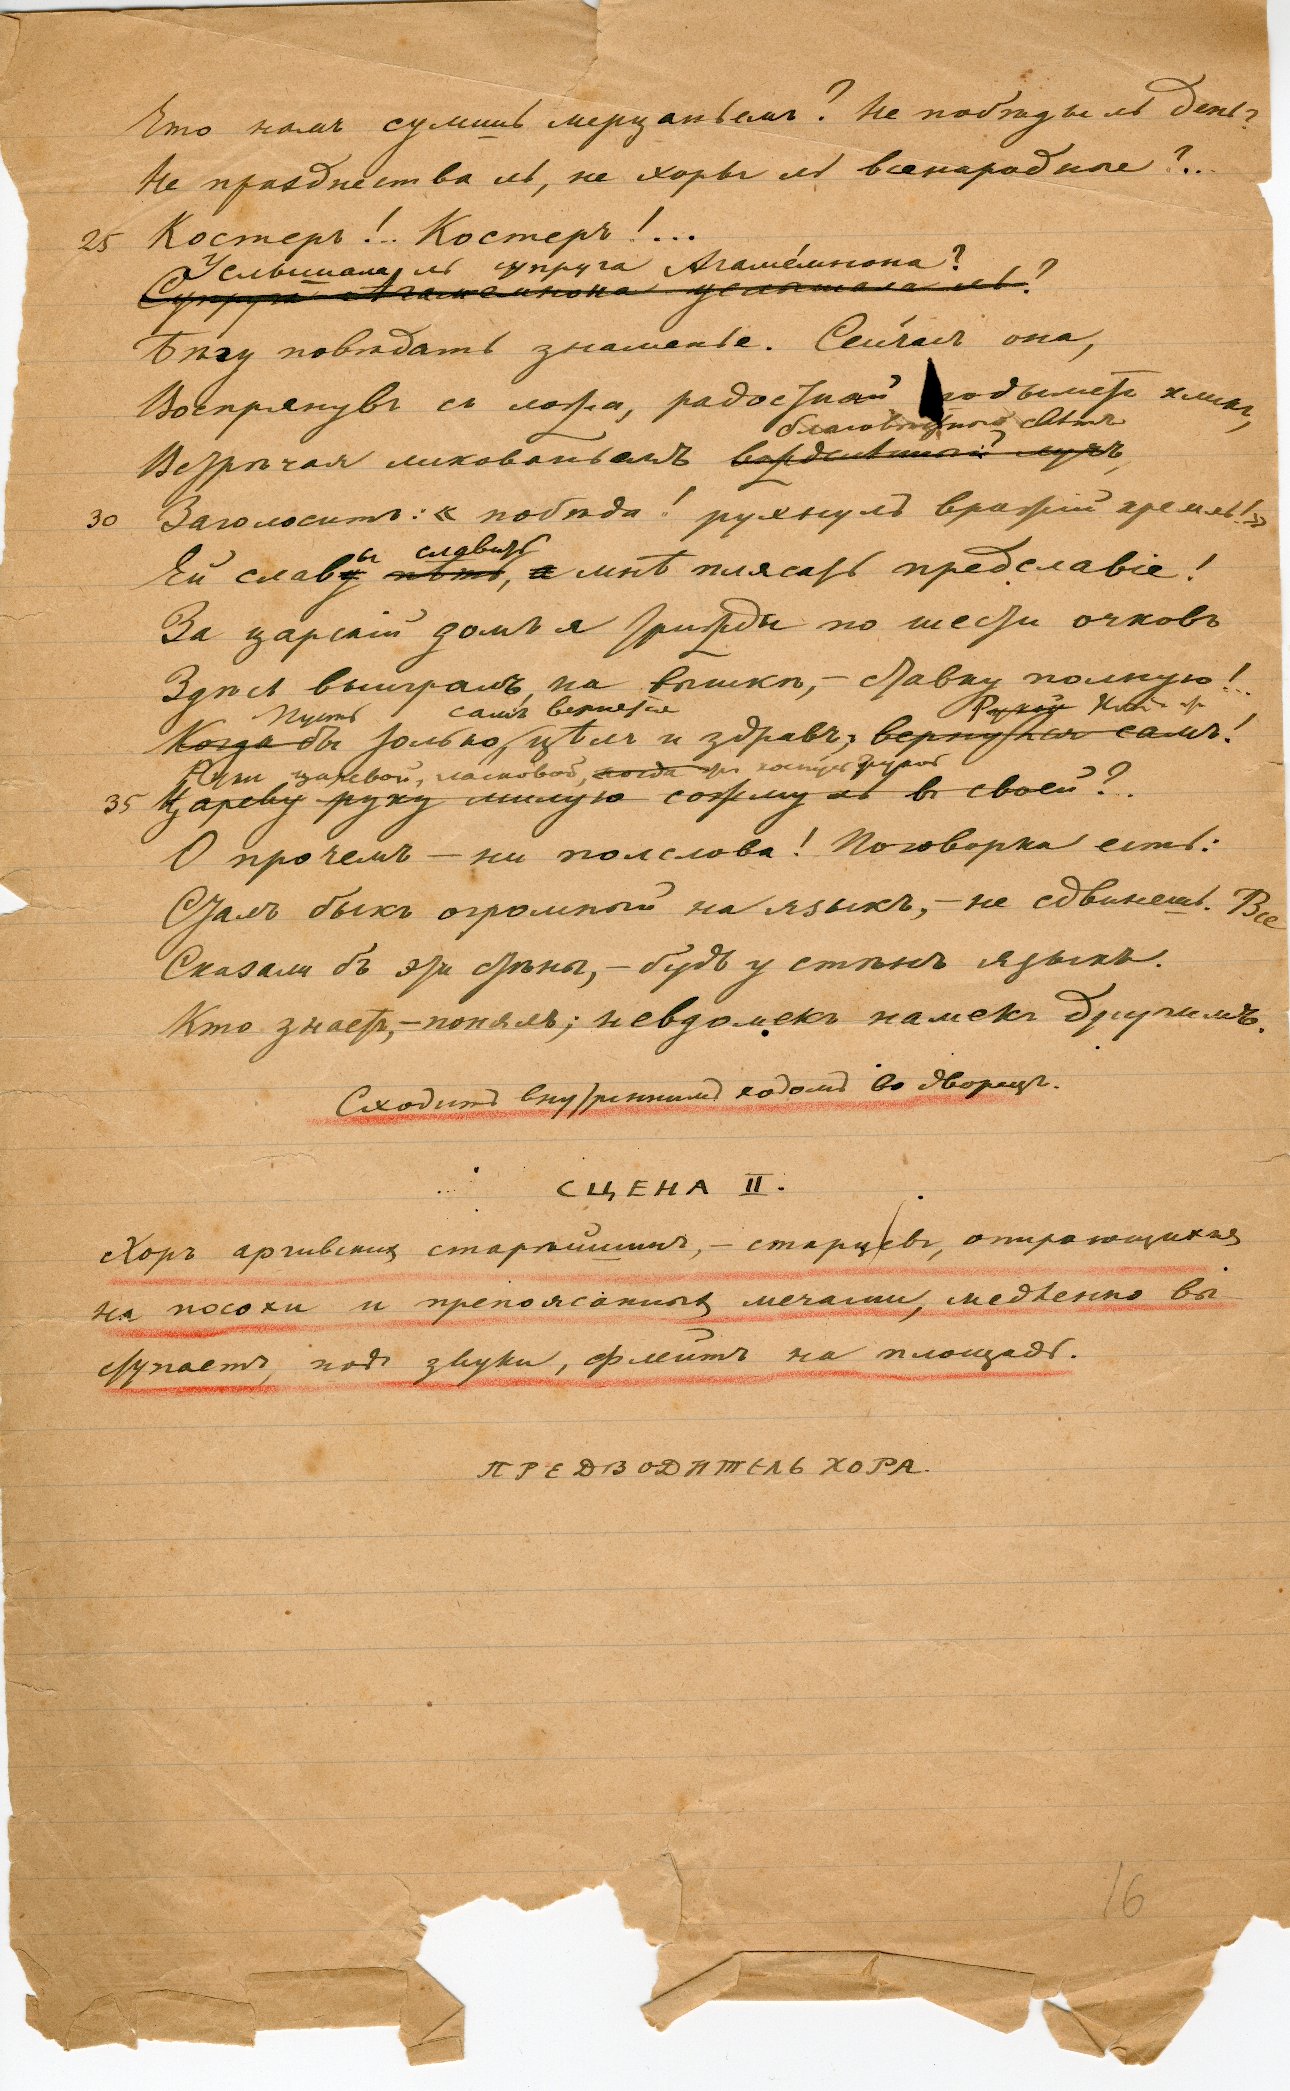 Что намъ сулишь мерцаньемъ? Не побѣды ль день?
Не празднества ль, не хоры ль всенародные?..
25 Костеръ!.. Костеръ!...
Услышала ль супруга Агамéмнона?
Супруга Агамемнона услышала ль?
Бѣгу повѣдать знаменье. Сейчасъ она,
Воспрянувъ съ ложа, радостный подыметъ кликъ,
благовѣстный свѣтъ
Встрѣчая ликованьемъ вожделѣнный лучъ,
30 Заголоситъ: «побѣда! рухнулъ вражій кремль!»
ы славить
Ей славу пѣть, а мнѣ плясать предславіе!
За царскій домъ я трижды по шести очковъ
Здѣсь выигралъ, на вышкѣ, – ставку полную!..
Пусть самъ вернется Рукой
Когда бы только, цѣлъ и здравъ, вернулся самъ!
Руки царевой, ласковой, когда рукой
35 Цареву руку милую сожму ль въ своей?..
О прочемъ – ни полслова! Поговорка есть:
Сталъ быкъ огромный на языкъ, – не сдвинешь. Все
Сказали бъ эти стѣны, – будь у стѣнъ языкъ.
Кто знаетъ, – понялъ; невдомекъ намекъ другимъ.
Сходитъ внутреннимъ ходомъ во дворецъ.
СЦЕНА II.
Хоръ аргивскихъ старѣйшинъ, – старцевъ, опирающихся
на посохи и препоясанныхъ мечами, медленно вы
ступаетъ, подъ звуки, флейтъ на площадь.
ПРЕДВОДИТЕЛЬ ХОРА.
16